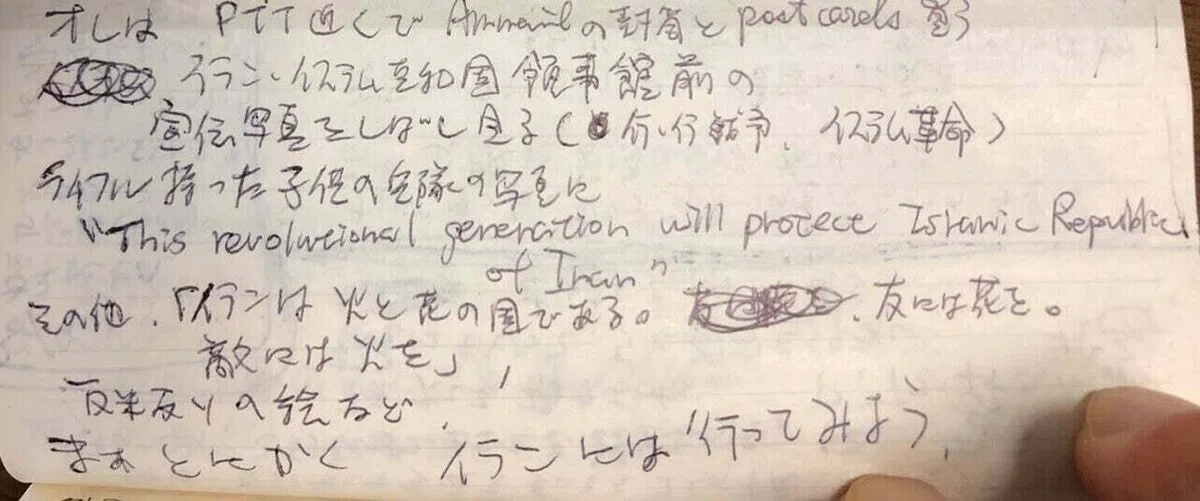 オレは PTT近くで Airmailの封筒とpostcards 買う
イラン・イスラム共和国 領事館前の
宣伝写真をしばし見る( イ・イ戦争、イスラム革命)
ライフル持った子供の兵隊の写真に
"This revolutional generation will protect Islamic Republic
of Iran"
その他、「イランは 火と花の国である。 友には花を。
敵には火を」,
反米反ソの絵など
まぁ とにかく イランには行ってみよう、